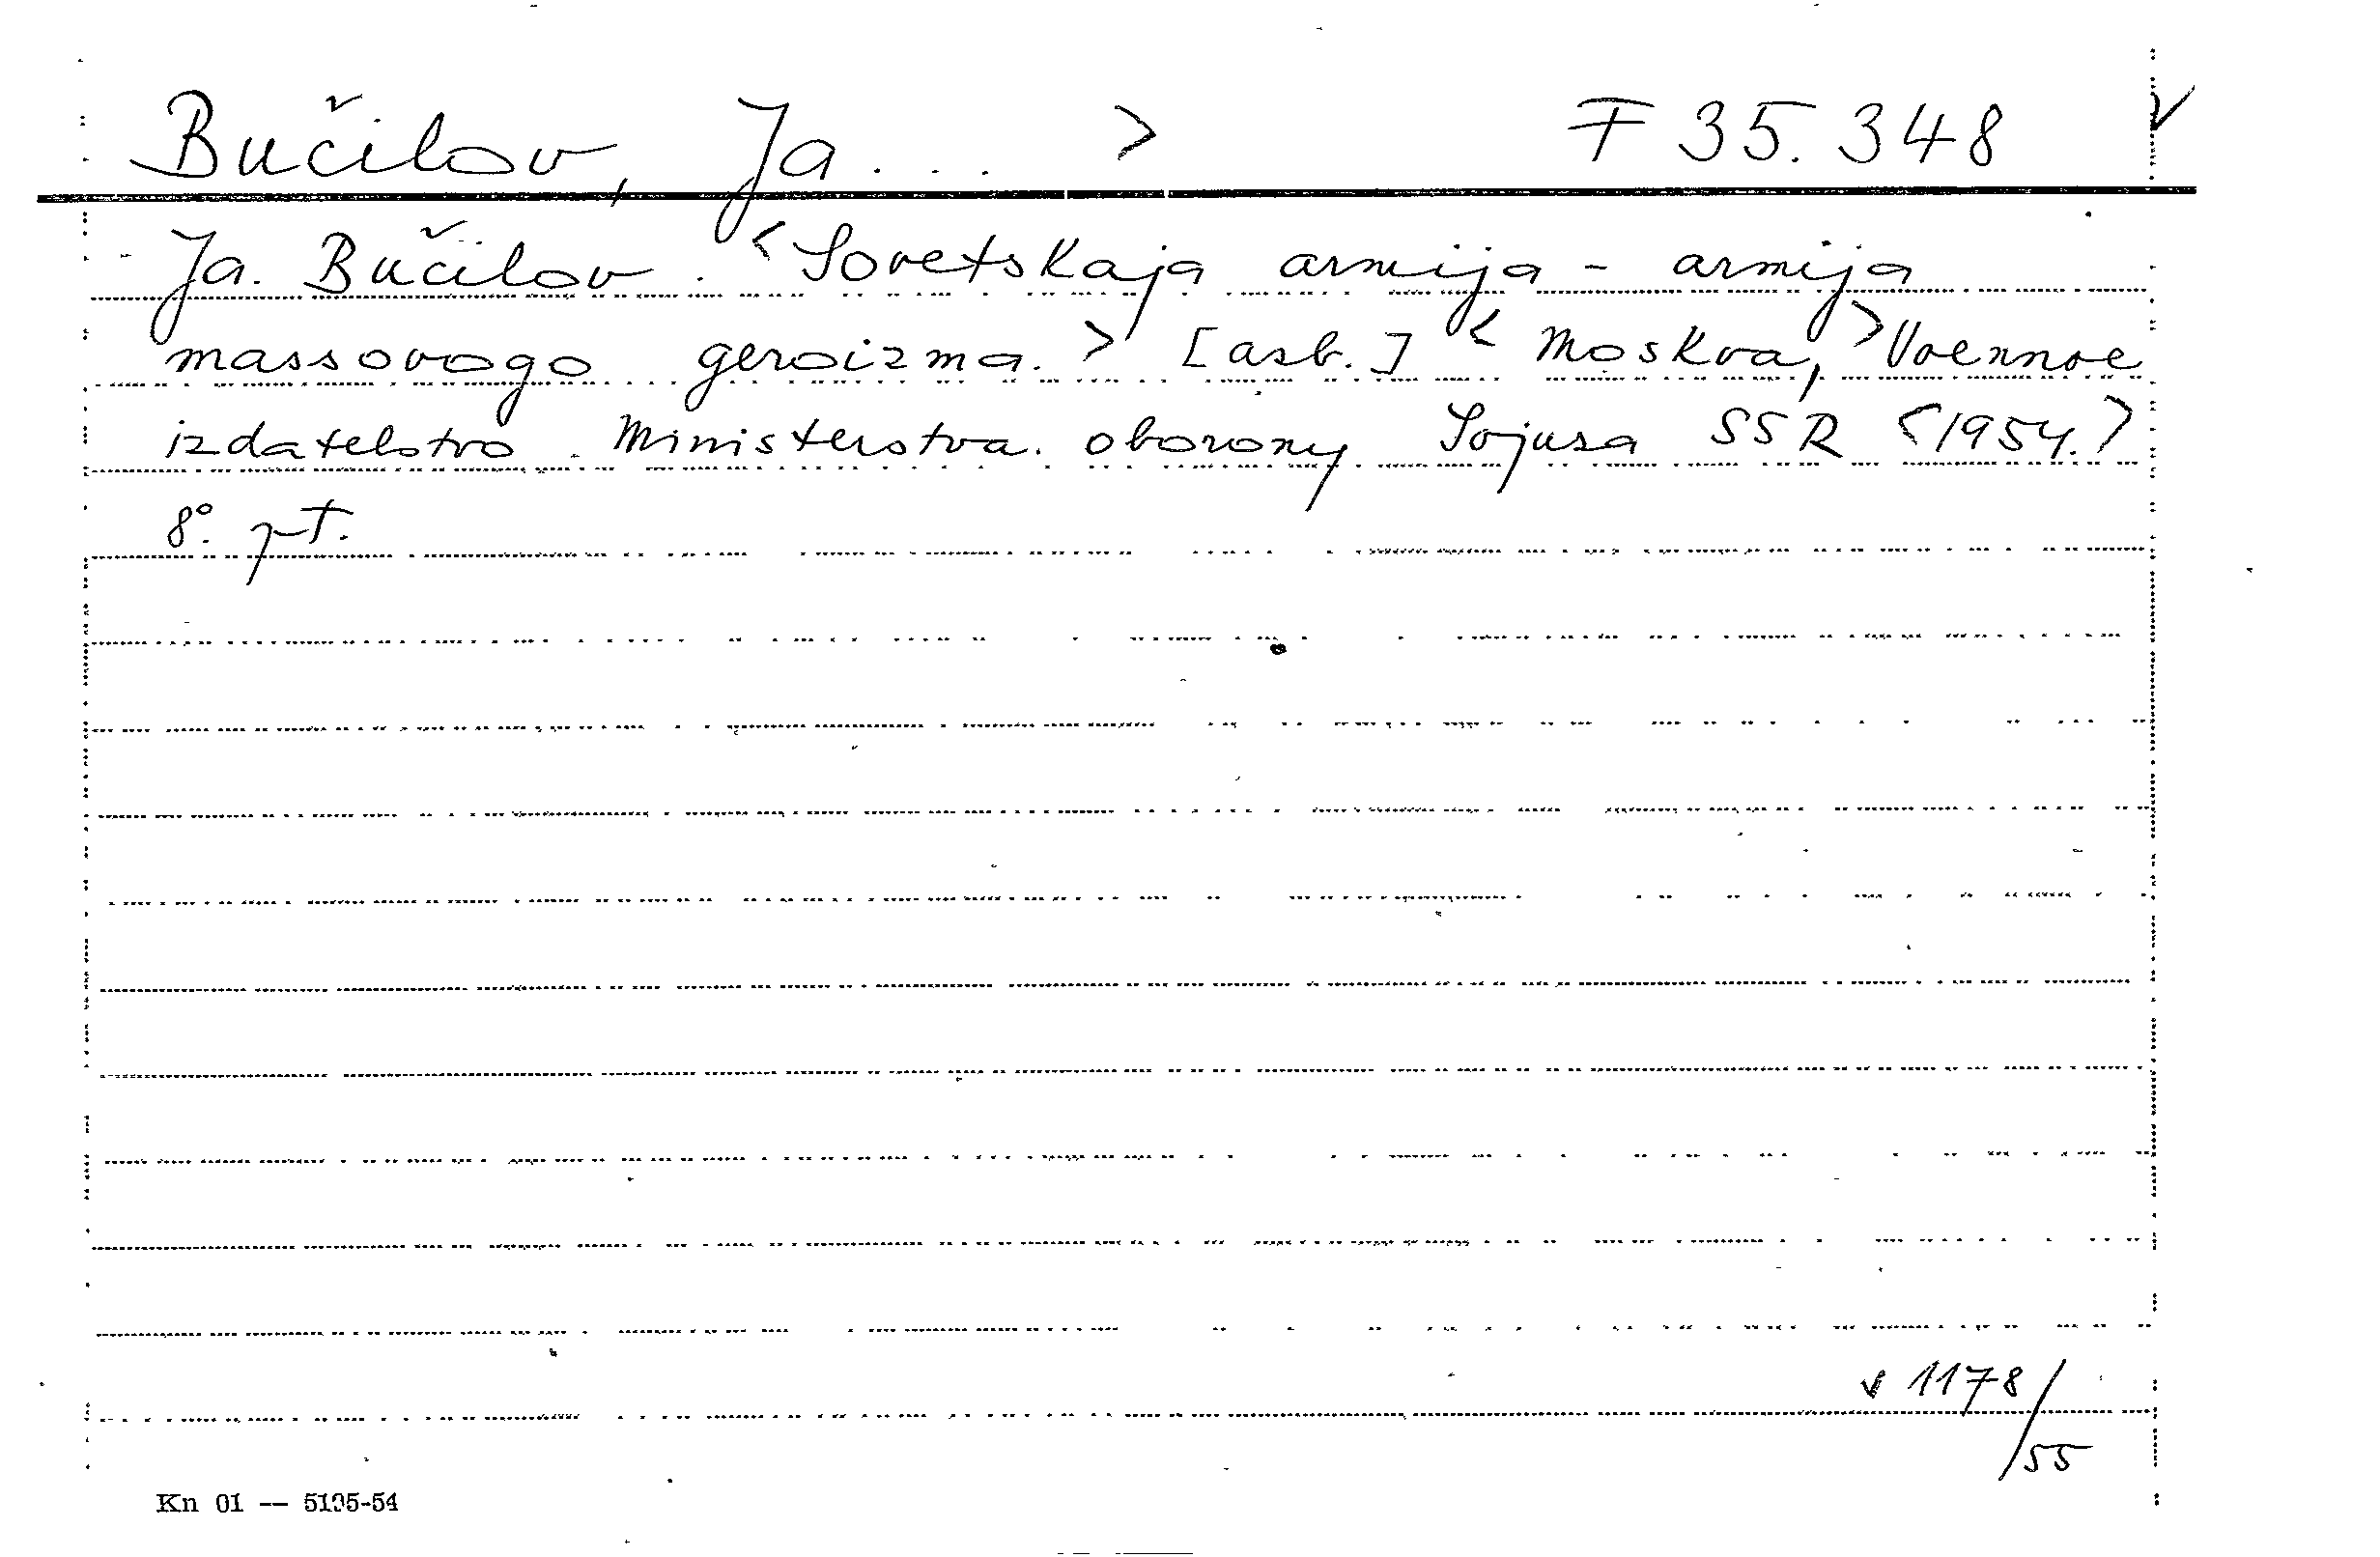 Bučilov, Ja... > F 35.348 v
Ja. Bučilov. <Sovetskaja armija - armija
massovogo geroizma.> [asb.] <Moskva,> Voennoe
izdatelstvo Ministerstva oborony Sojuza SSR <1954.>
8° pt.
v 1178/
55
Kn 01 — 5195-54